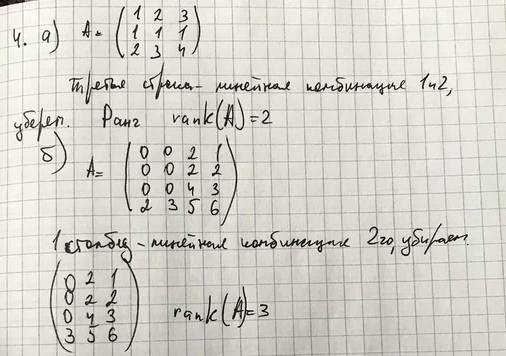 4. а) A = ( 1 2 3
1 1 1
2 3 4 )
Третья строка - линейная комбинация 1 и 2,
уберем. Ранг rank(A) = 2
б) A = ( 0 0 2 1
0 0 2 2
0 0 4 3
2 3 5 6 )
1 столбец - линейная комбинация 2го, убираем.
( 0 2 1
0 2 2
0 4 3
3 5 6 ) rank(A) = 3